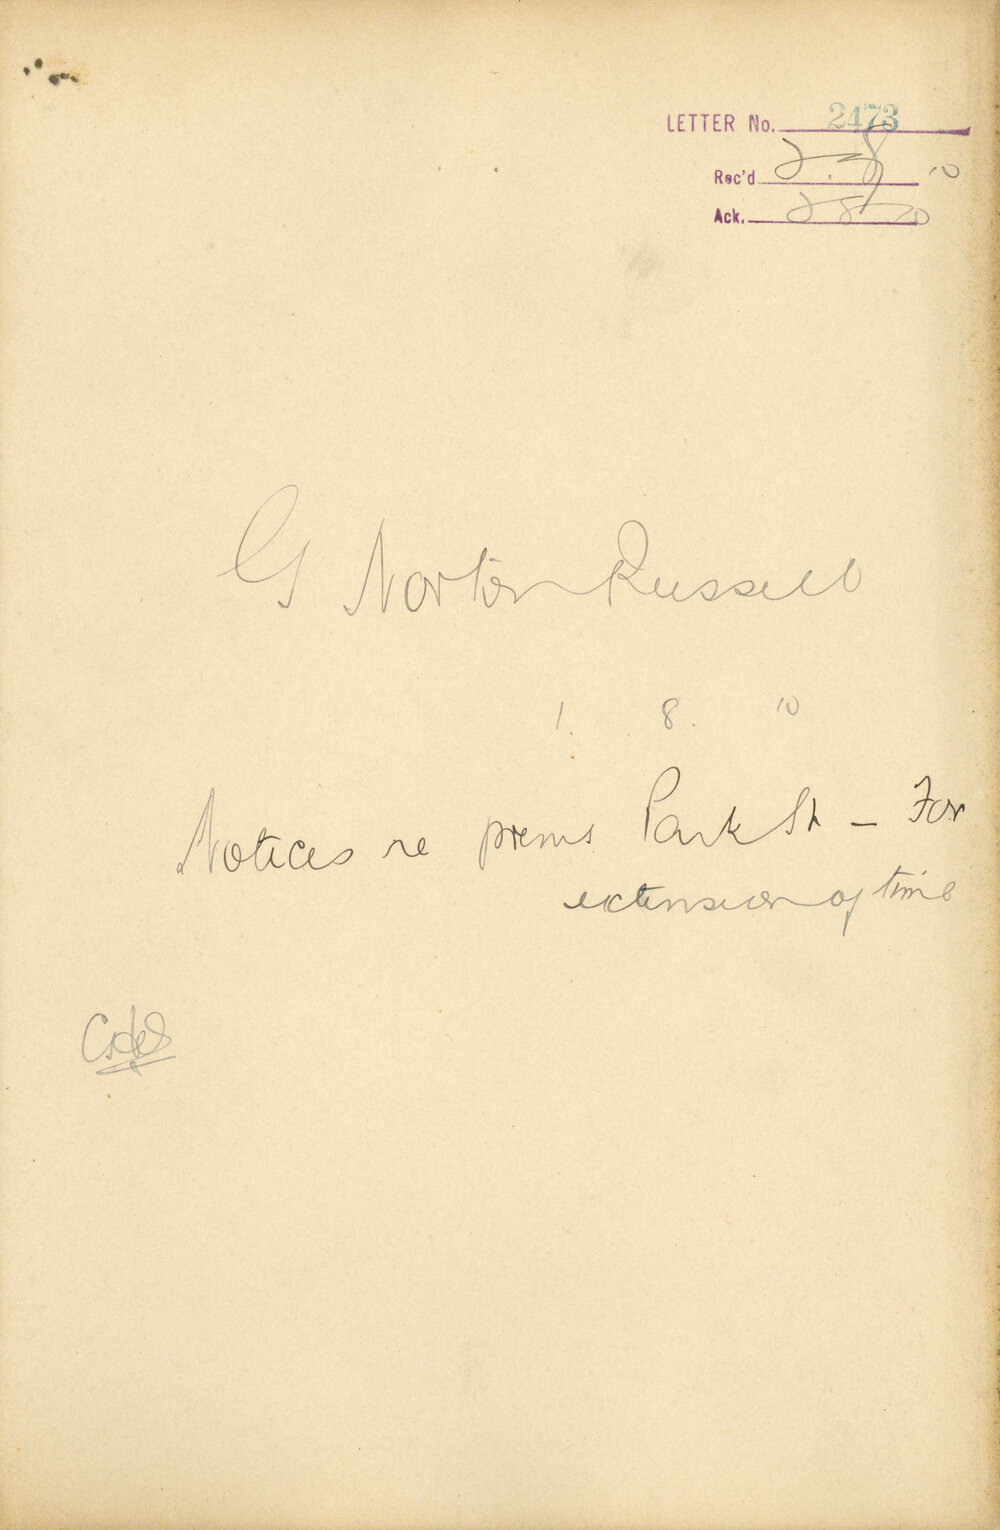 LETTER No. 2473
Rec'd 2.8.10
Ack. 2 8 10
G Norton Russell
1. 8. 10
Notices re prems Park St – For
extension of time